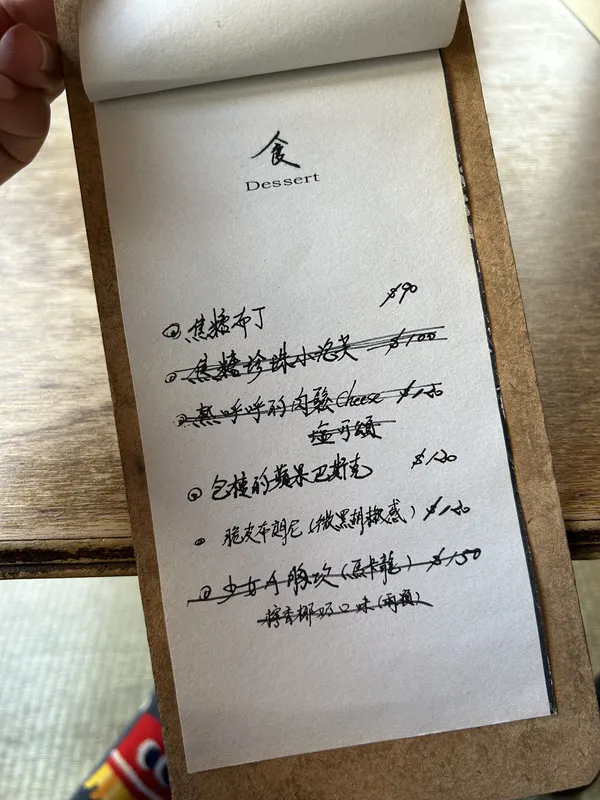 食
Dessert
焦糖布丁 $90
焦糖珍珠小泡芙 $100
熱呼呼的肉鬆Cheese $120
塩可頌
包種的蘋果巴斯克 $120
脆皮布朗尼(微黑胡椒感) $120
少女A胸攻(馬卡龍) $150
檸香椰奶口味(兩顆)